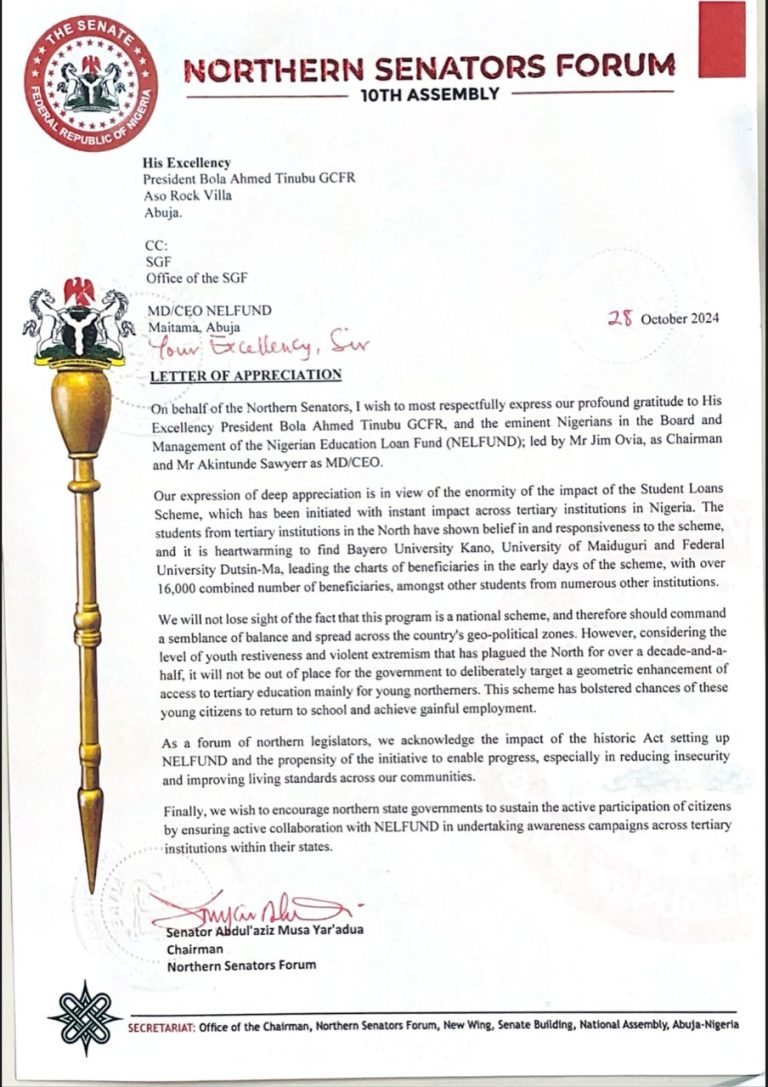 THE SENATE
FEDERAL REPUBLIC OF NIGERIA
NORTHERN SENATORS FORUM
10TH ASSEMBLY
His Excellency
President Bola Ahmed Tinubu GCFR
Aso Rock Villa
Abuja.
CC:
SGF
Office of the SGF
MD/CEO NELFUND
Maitama, Abuja
28 October 2024
Your Excellency, Sir
LETTER OF APPRECIATION
On behalf of the Northern Senators, I wish to most respectfully express our profound gratitude to His
Excellency President Bola Ahmed Tinubu GCFR, and the eminent Nigerians in the Board and
Management of the Nigerian Education Loan Fund (NELFUND); led by Mr Jim Ovia, as Chairman
and Mr Akintunde Sawyerr as MD/CEO.
Our expression of deep appreciation is in view of the enormity of the impact of the Student Loans
Scheme, which has been initiated with instant impact across tertiary institutions in Nigeria. The
students from tertiary institutions in the North have shown belief in and responsiveness to the scheme,
and it is heartwarming to find Bayero University Kano, University of Maiduguri and Federal
University Dutsin-Ma, leading the charts of beneficiaries in the early days of the scheme, with over
16,000 combined number of beneficiaries, amongst other students from numerous other institutions.
We will not lose sight of the fact that this program is a national scheme, and therefore should command
a semblance of balance and spread across the country's geo-political zones. However, considering the
level of youth restiveness and violent extremism that has plagued the North for over a decade-and-a-
half, it will not be out of place for the government to deliberately target a geometric enhancement of
access to tertiary education mainly for young northerners. This scheme has bolstered chances of these
young citizens to return to school and achieve gainful employment.
As a forum of northern legislators, we acknowledge the impact of the historic Act setting up
NELFUND and the propensity of the initiative to enable progress, especially in reducing insecurity
and improving living standards across our communities.
Finally, we wish to encourage northern state governments to sustain the active participation of citizens
by ensuring active collaboration with NELFUND in undertaking awareness campaigns across tertiary
institutions within their states.
Senator Abdul'aziz Musa Yar'adua
Chairman
Northern Senators Forum
SECRETARIAT: Office of the Chairman, Northern Senators Forum, New Wing, Senate Building, National Assembly, Abuja-Nigeria